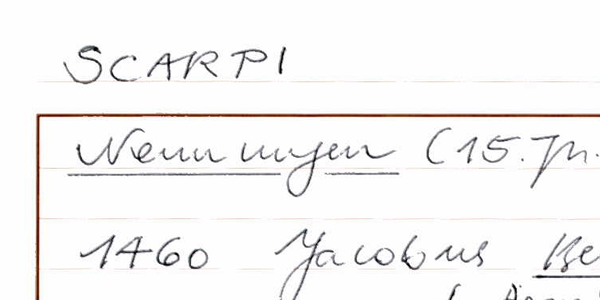 SCARPI
Nennungen (15. Jh.
1460 Jacobus Be